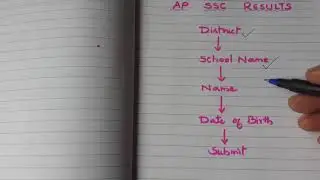 AP SSC RESULTS
District
School Name
Name
Date of Birth
Submit